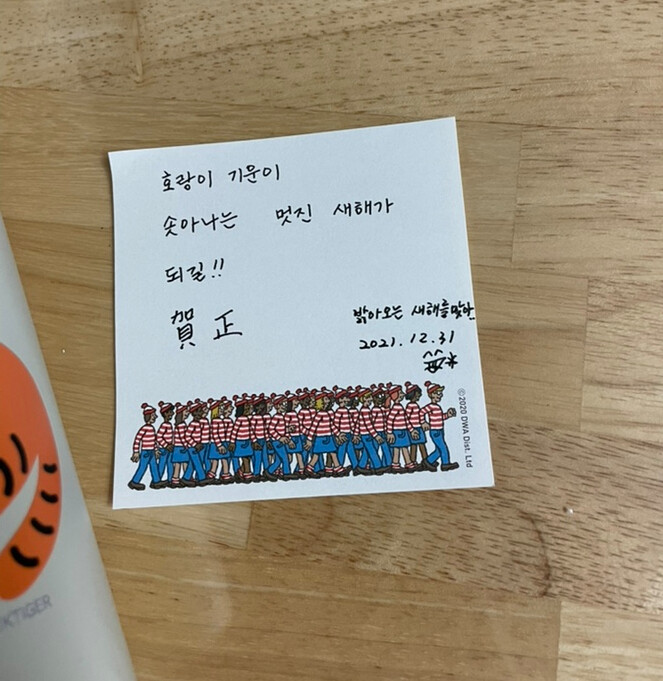 호랑이 기운이
솟아나는 멋진 새해가
되길!!
賀正
밝아오는 새해를 맞아
2021.12.31
©2020 DWA Dist. Ltd
KTIGER